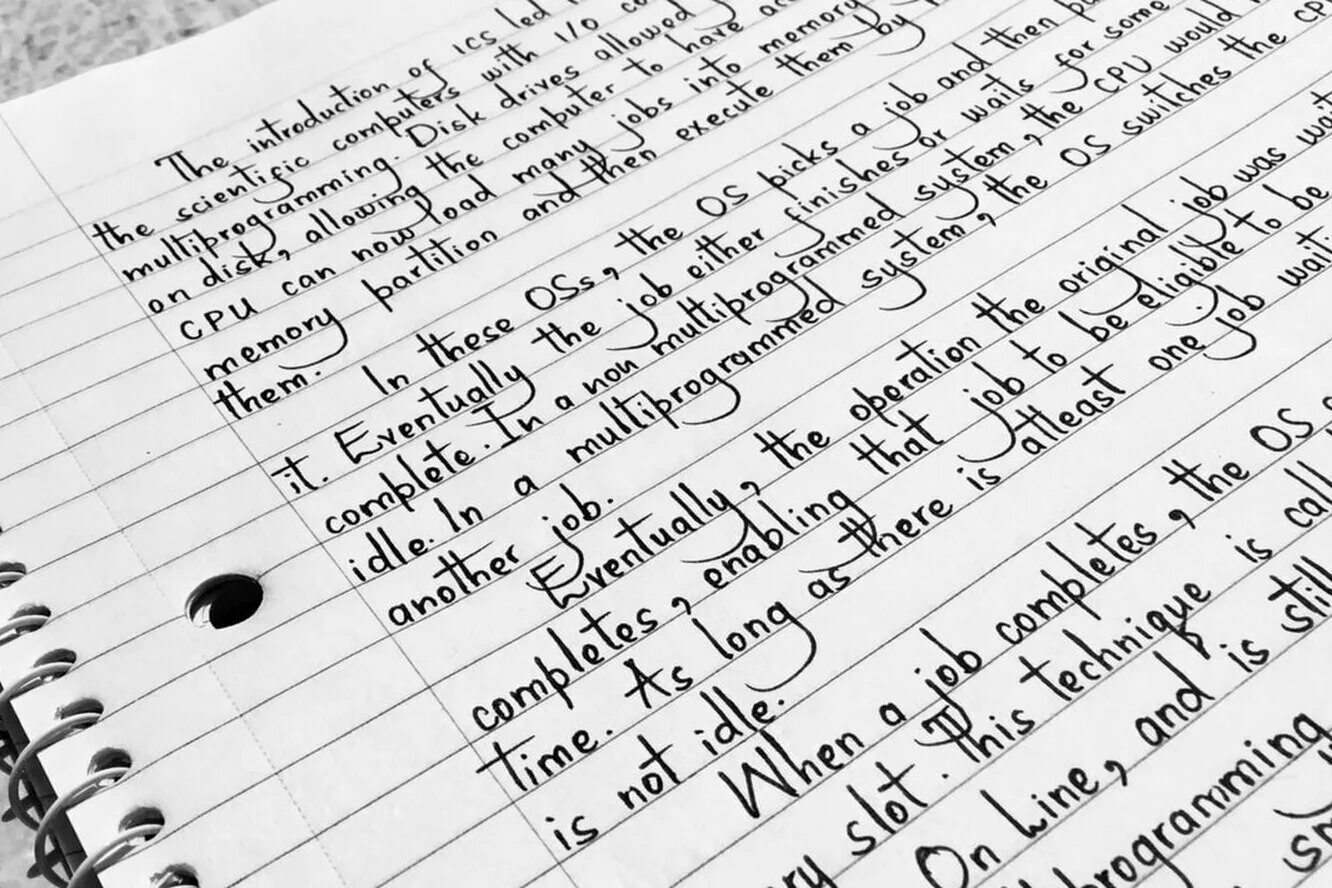 The introduction of ICS led
the scientific computers with I/O
multiprogramming. Disk drives allowed
on disk, allowing the computer to have
CPU can now load many jobs into memory
memory partition and then execute them by
them.
In these OSs, the OS picks a job and then
it. Eventually the job either finishes or waits for some
complete. In a non multiprogrammed system, the CPU would
idle. In a multiprogrammed system, the OS switches the CP
another job.
Eventually, the operation the original job was
completes, enabling that job to be eligible to be
time. As long as there is atleast one job
is not idle.
When a job completes, the OS
slot. This technique is call
On Line, and is still
programming